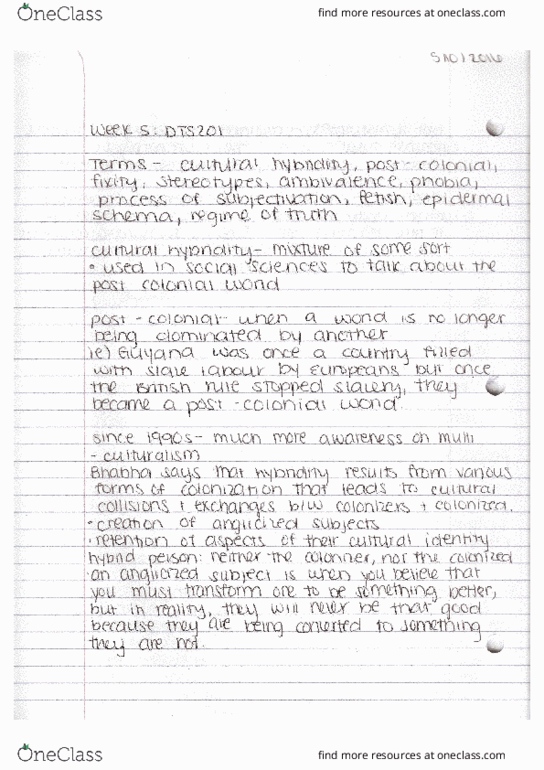 OneClass
find more resources at oneclass.com
5/10/2016
Week 5: DTS201
Terms - cultural hybridity, post-colonial,
fixity, stereotypes, ambivalence, phobia,
process of subjectivation, fetish, epidermal
schema, regime of truth
cultural hybridity - mixture of some sort
• used in social sciences to talk about the
post colonial world
post-colonial- when a world is no longer
being dominated by another
ie) Guyana was once a country filled
with slave labour by europeans but once
the British rule stopped slavery, they
became a post-colonial world.
since 1990s- much more awareness on multi
- culturalism
Bhabha says that hybridity results from various
forms of colonization that leads to cultural
collisions + exchanges b/w colonizers + colonized.
• creation of anglicized subjects
• retention of aspects of their cultural identity
hybrid person: neither the colonizer, nor the colonized
an anglicized subject is when you believe that
you must transform one to be something better,
but in reality, they will never be that good
because they are being converted to something
they are not.
OneClass
find more resources at oneclass.com